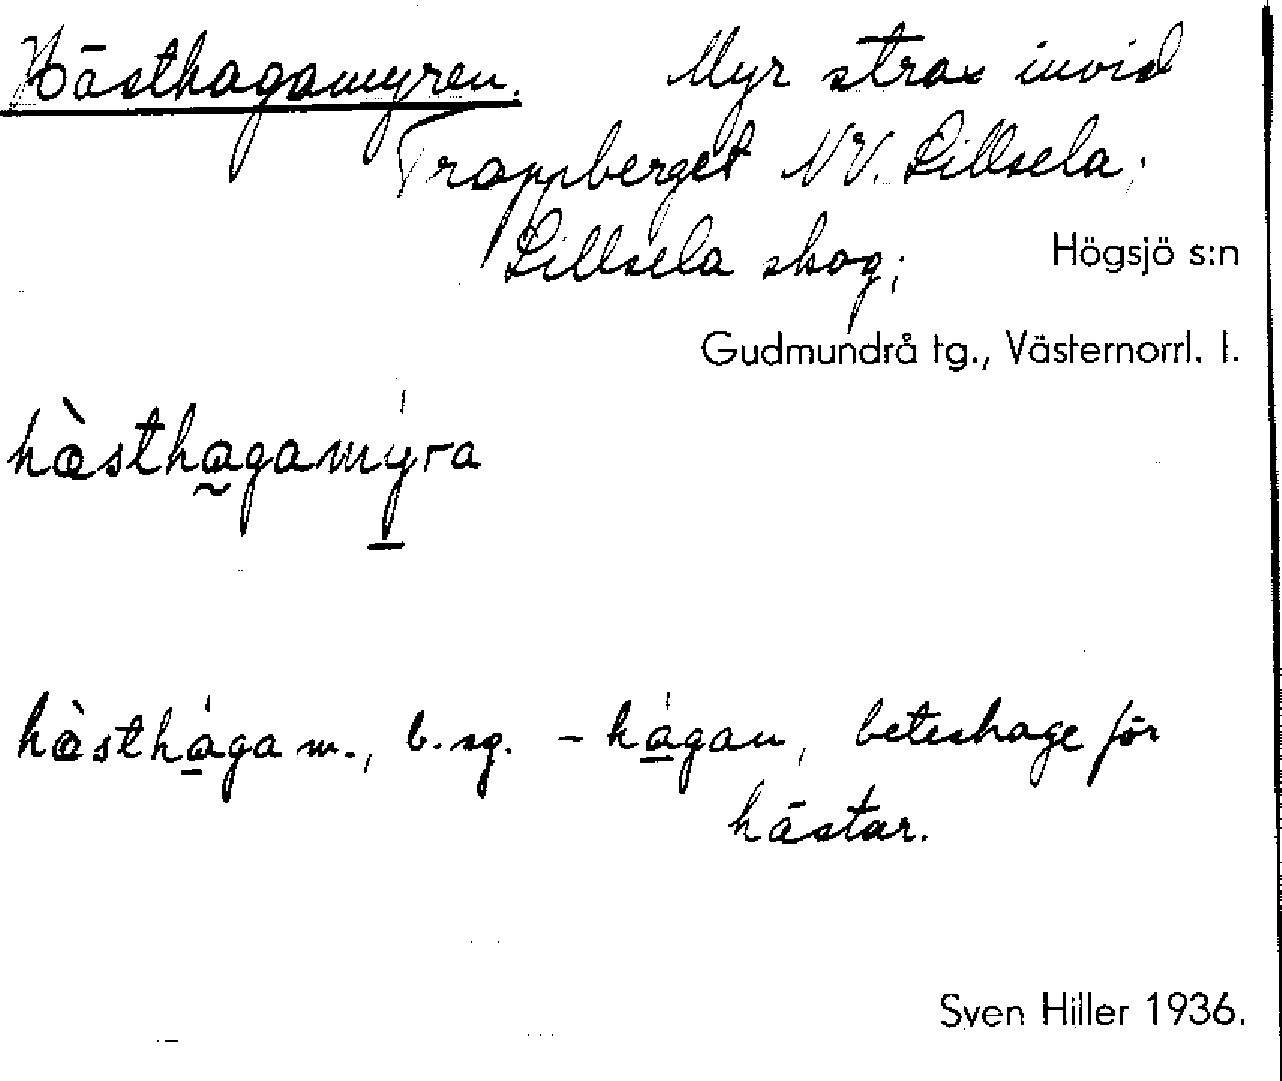 Hästhagamyren. Myr strax invid
Trappberget NV. Lillsela,
Lillsela skog; Högsjö s:n
Gudmundrå tg., Västernorrl. l.
hàsthagamýra
hàsthága m., b.sg. – hágan, beteshage för
hästar.
Sven Hiller 1936.